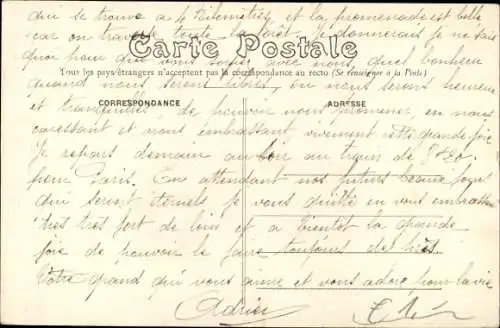 qui se trouve a 4 kilomètres et la promenade est belle
car on traverse toute la foret je donnerais je ne sais
Carte Postale
quoi pour que vous soyez avec nous, quel bonheur
Tous les pays étrangers n'acceptent pas la correspondance au recto (Se renseigner à la Poste)
quand nous serons libres, ou nous serons heureux
CORRESPONDANCE
ADRESSE
et tranquilles de pouvoir nous promener, en nous
caressant et nous embrassant vivement cette grande joie
Je repars demain au soir au train de
pour Paris. En attendant nos futurs beaux jours
qui seront éternels je vous quitte en vous embrassant
très très fort de loin et a bientot la grande
joie de pouvoir le faire toujours de près.
Votre grand qui vous aime et vous adore pour la vie
Adrien